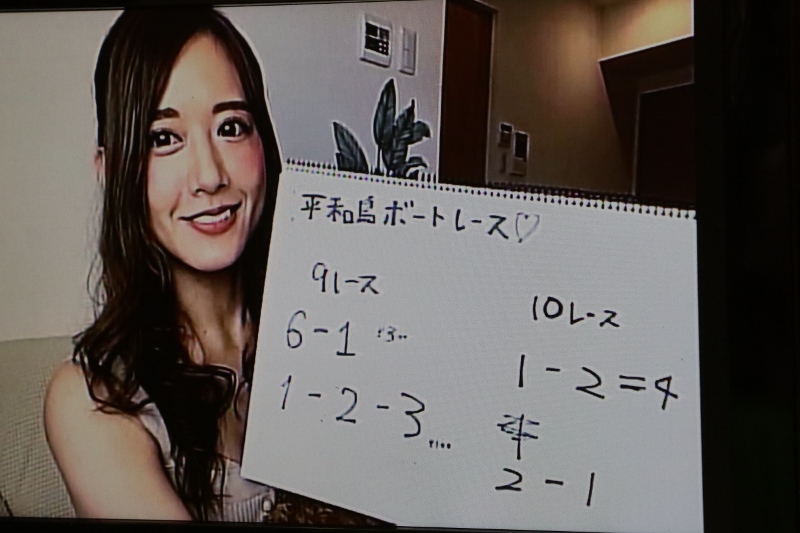 平和島ボートレース♡
9レース
6-1
1-2-3
10レース
1-2=4
2-1